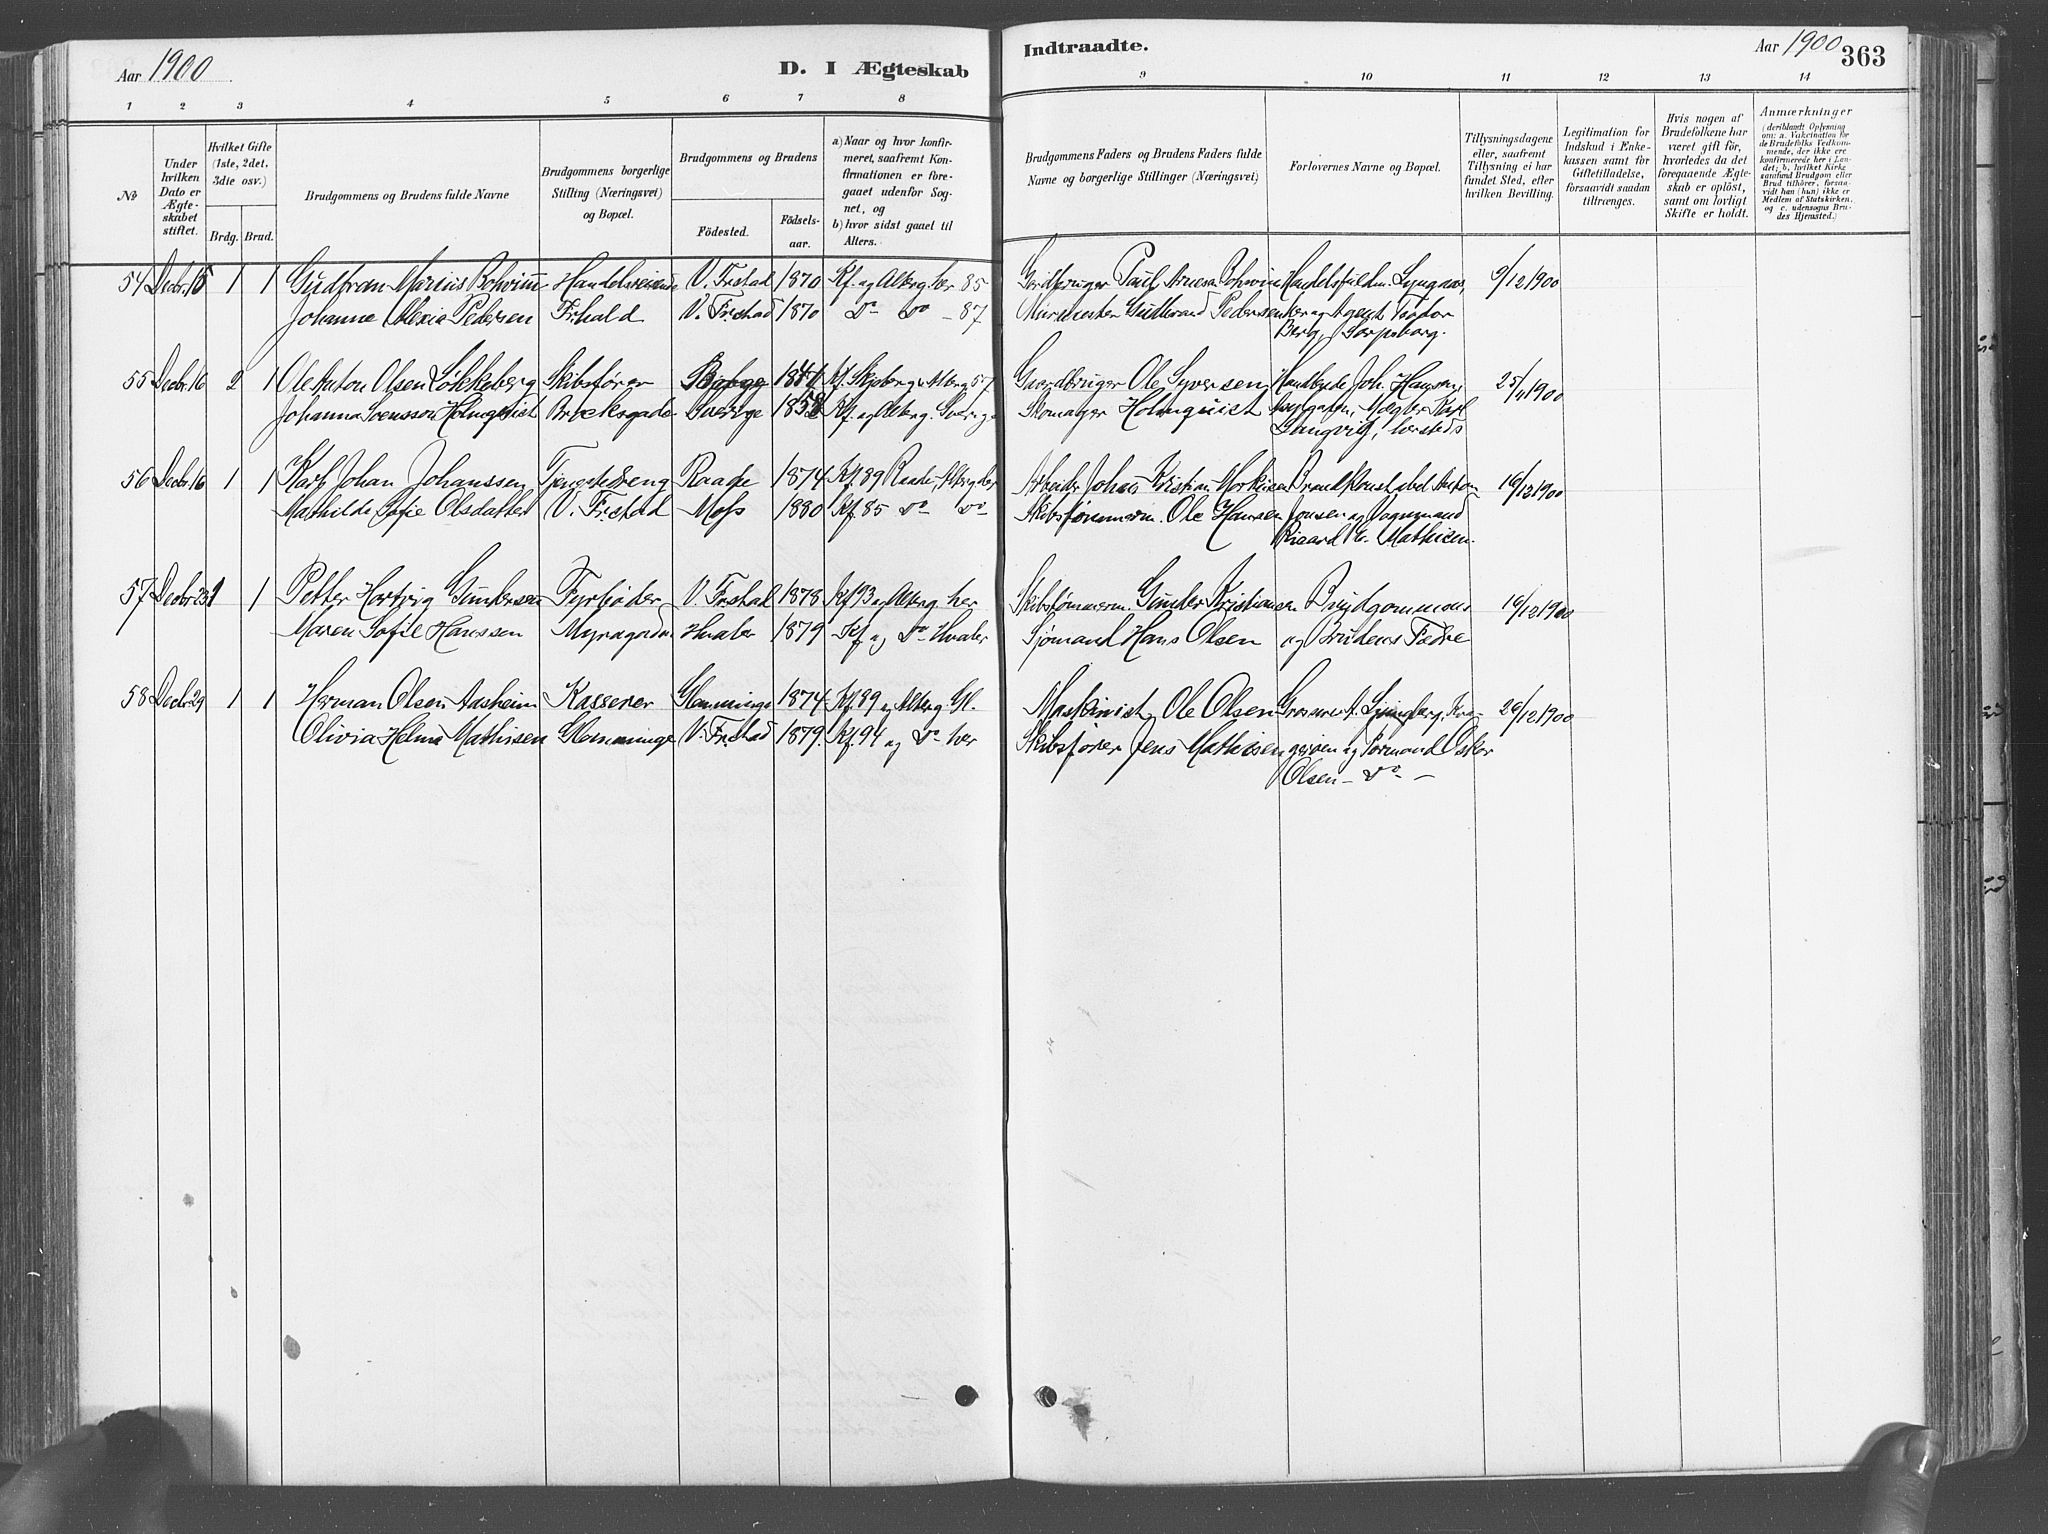 Aar 1900
D. I Ægteskab
1 2 3 4 5 6 7 8
№
Under hvilken Dato er Ægteskabet stiftet.
Hvilket Gifte (1ste, 2det, 3die osv.)
Brdg. Brud.
Brudgommens og Brudens fulde Navne
Brudgommens borgerlige Stilling (Næringsvei) og Bopœl.
Brudgommens og Brudens
Födested. Födselsaar.
a) Naar og hvor konfirmeret, saafremt Konfirmationen er foregaaet udenfor Sognet, og
b) hvor sidst gaaet til Alters.
54 Decbr. 15 1 1 Gudbran Marius Bohvim Handelsreisende V. Frstad 1870 Kf. og Alterg. her 85
Johanne Alexia Pedersen Frhald V. Frstad 1870 Do Do - 87
55 Decbr. 16 2 1 Ole Anton Olsen Løkkeberg Skibsfører Borge 1841 Kf. Skjeberg Altberg 57
Johanna Svensson Holmqvist Brocksgade Sverige 1858 Kf. og Alterg. Sverige
56 Decbr. 16 1 1 Karl Johan Johanssen Tjenestedreng Raade 1874 Kf. 89 Raade, Alterg. her
Mathilde Sofie Olsdatter V. Frstad Moss 1880 Kf. 85 Do Do
57 Decbr 23 1 1 Petter Hartvig Gundersen Fyrbøder V. Frstad 1878 Kf 93 og Alterg. her
Maren Sofie Hanssen Myragaden Hvaler 1879 Kf og Do Hvaler
58 Decbr 29 1 1 Herman Olsen Aasheim Kasserer Glemminge 1874 Kf. 89 og Alterg. Gl.
Olivia Helma Mathisen Glemminge V. Frstad 1879. Kf. 94 og Do her
Indtraadte.
Aar 1900 363
9 10 11 12 13 14
Brudgommens Faders og Brudens Faders fulde Navne og borgerlige Stillinger (Næringsvei)
Forlovernes Navne og Bopœl.
Tillysningsdagene eller, saafremt Tillysning ei har fundet Sted, efter hvilken Bevilling.
Legitimation for Indskud i Enkekassen samt for Giftetilladelse, forsaavidt saadan tiltrœnges.
Hvis nogen af Brudefolkene har vœret gift för, hvorledes da det foregaaende Ægteskab er oplöst, samt om lovligt Skifte er holdt.
Anmœrkninger (deriblandt Oplysning om: a. Vakcination för de Brudefolks Vedkommende, der ikke ere konfirmerede her i Landet; b. hvilket Kirkesamfund Brudgom eller Brud tilhörer, forsaavidt han (hun) ikke er Medlem af Statskirken, og c. udensogns Brudes Hjemsted.)
Gaardbruger Paul Arnesen Bohvim Handelsfuldm. Lyngaas, 9/12 1900
Murmester Gudbrand Pedersen her og Agent Teodor
Berg, Sarpsborg.
Gaardbruger Ole Syversen Handlende Joh. Hansen 25/11 1900
Skomager Holmquist Asylgaten, Mægler Karl
Langvig, hersteds
Arbeider Johan Kristian Markusen Brandkonstabel Anton 16/12 1900
Skibstømmerm. Ole Hansen Jonsen og Vognmand
Rikard E. Mathisen.
Skibstømmerm. Gunder Kristiansen Brudgommens 16/12 1900
Sjømand Hans Olsen og Brudens Fædre
Maskinist Ole Olsen Grosserer A. Ljungberg, Kra- 26/12 1900
Skibsfører Jens Mathisen gerøen og Formand Oskar
Olsen - Do -